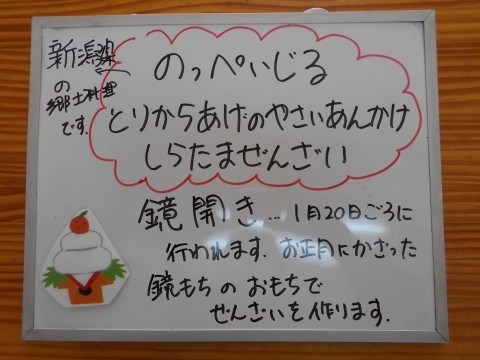 新潟県
の
郷土料理
です.
のっぺいじる
とりからあげのやさいあんかけ
しらたまぜんざい
鏡開き… 1月20日ごろに
行われます. お正月にかざった
鏡もちのおもちで
ぜんざいを作ります.